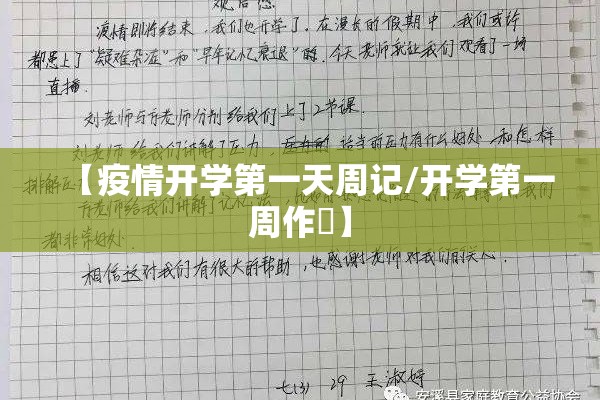 观后感.
疫情即将结束，我们也开学了。在漫长的假期中，我们或许
都患上了“疑难杂症”和“早年记忆衰退”的。今天老师就让我们观看了一场
直播.
刘老师与方老师分别给我们上了2节课.
刘老师给我们讲解了压力，
排解压
【疫情开学第一天周记/开学第一
周作】
方老师给我们讲解了记忆法
都非常好处.
相信这对我们有很大的帮助，也感谢老师对我们的关心.
七(3) 29 王淑婷
安溪县家庭教育公益协会